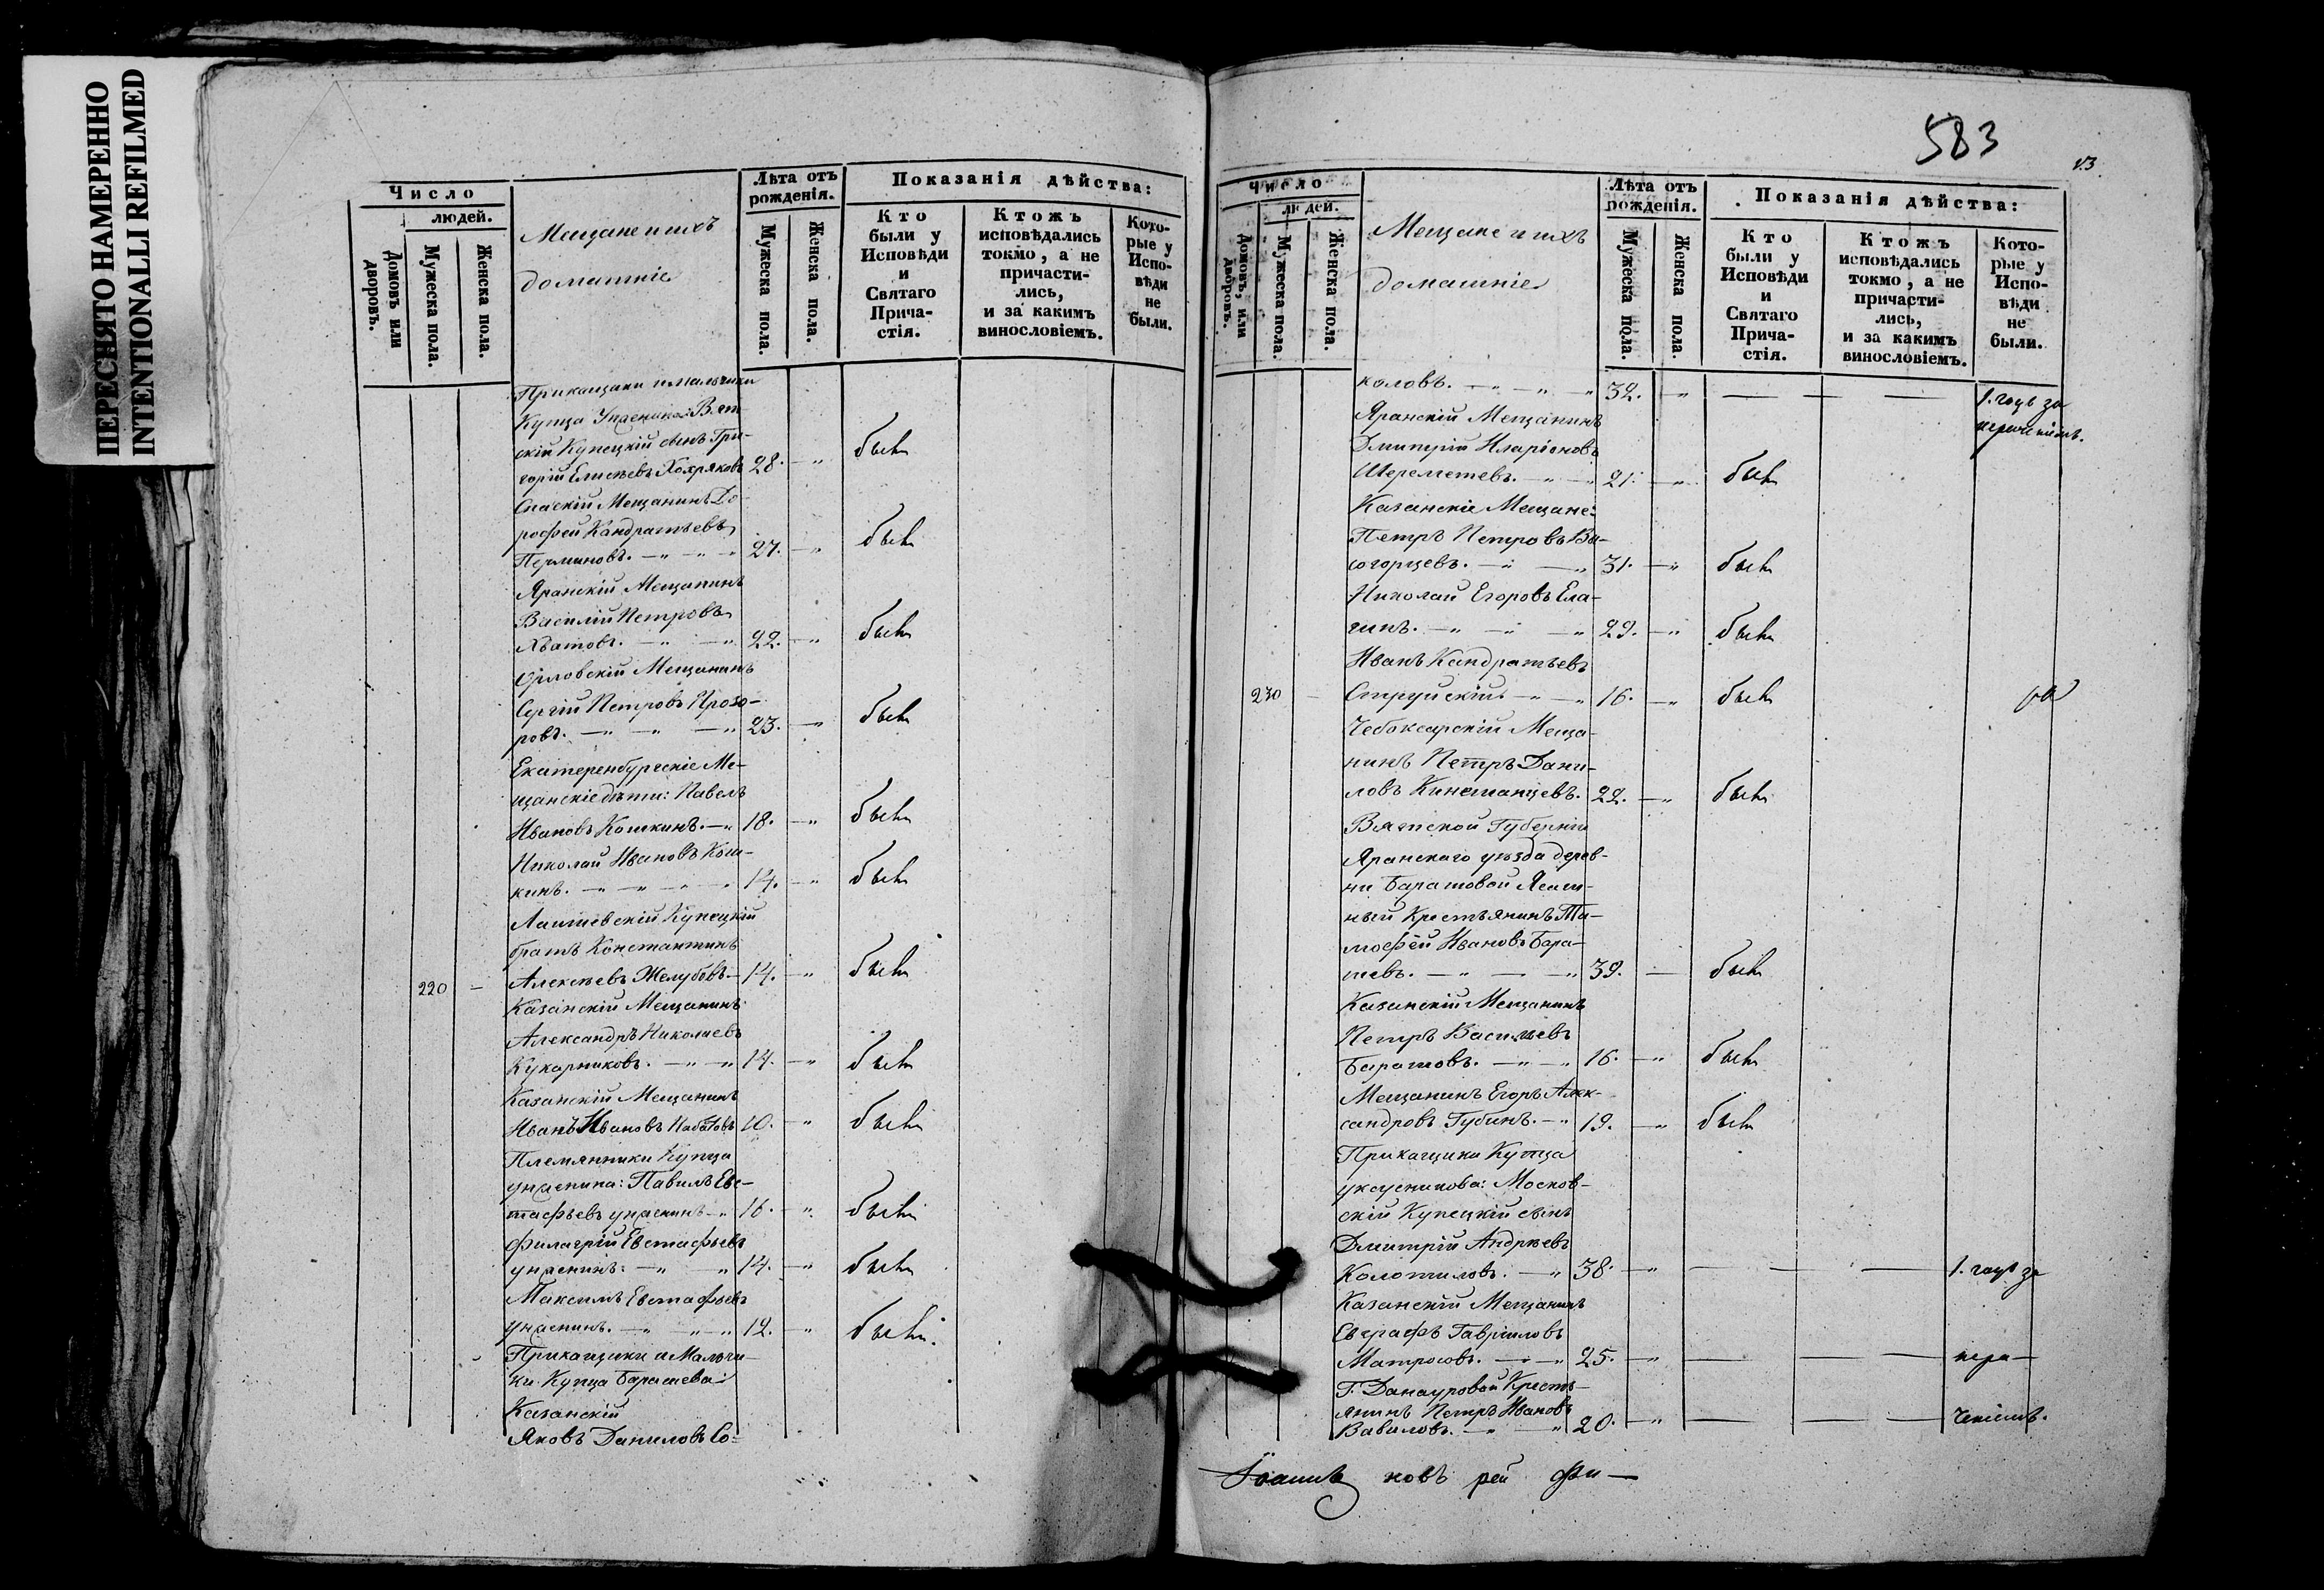 ПЕРЕСНЯТО НАМЕРЕННО
INTENTIONALLI REFILMED
Число
людей.
Домовъ или дворовъ.
Мужеска пола.
Женска пола.
Мещане и ихъ
домашніе
Лѣта отъ рожденія.
Мужеска пола.
Женска пола.
Показанія дѣйства:
Кто были у Исповѣди и Святаго Прича-стія.
Ктожъ исповѣдались токмо, а не причасти-лись, и за какимъ винословіемъ.
Кото-рые у Испо-вѣди не были.
Прикащики и мальчики
Купца Унженина: Вят
скій Купецкій сынъ Гри-
горій Елисѣевъ Хохряковъ 28. — " былъ
Спаскій Мещанинъ До-
рофей Кандратьевъ
Перминовъ. — " — " — " 27. — " былъ
Яранскій Мещанинъ
Василій Петровъ
Хватовъ. — " — " 22. — " былъ
Орловскій Мещанинъ
Сергій Петровъ Прозо-
ровъ. — " — " — " 23. — " былъ
Екатеренбургскіе Ме-
щанскіе дѣти: Павелъ
Ивановъ Кошкинъ. — " 18. — " былъ
Николай Ивановъ Кош-
кинъ. — " — " — " — " 14. — " былъ
Лаишевскій Купецкій
братъ Константинъ
220 — Алексѣевъ Желубовъ. — 14. — " былъ
Казанскій Мещанинъ
Александръ Николаевъ
Кукарниковъ. — " — " 14. — " былъ
Казанскій Мещанинъ
Иванъ Ивановъ Набатовъ 10. — " былъ
Племянники Купца
Унженина: Павилъ Евс-
тафьевъ Унженинъ — " 16. — " былъ
Филагрій Евстафьевъ
Унженинъ: — " — " 14. — " былъ
Максимъ Евстафьевъ
Унженинъ. — " — " — " 12. — " былъ.
Прикащики и Мальчи-
ки Купца Барашева:
Казанскій
Яковъ Даниловъ Со-
583
Число
людей.
Домовъ, или дворовъ.
Мужеска пола.
Женска пола.
Мещане и ихъ
домашніе
Лѣта отъ рожденія.
Мужеска пола.
Женска пола.
Показанія дѣйства:
Кто были у Исповѣди и Святаго Прича-стія.
Ктожъ исповѣдались токмо, а не причасти-лись, и за какимъ винословіемъ.
Кото-рые у Испо-вѣди не были.
коловъ. — " — " — " 32. — " — — — 1. годъ за
нераченіемъ.
Яранскій Мещанинъ
Дмитрій Иларіоновъ
Шереметевъ. — " — " 21. — " былъ
Казанскіе Мещане:
Петръ Петровъ Вы-
согорцевъ. — " — " 31. — " былъ
Николай Егоровъ Ела-
гинъ. — " — " — " 29. — " былъ
Иванъ Кандратьевъ
230 — Струйскій — " — " 16. — " былъ
Чебоксарскій Меща-
нинъ Петръ Дани-
ловъ Кинешанцевъ. 22. — " былъ
Вятской Губерніи
Яранскаго уѣзда дерев-
ни Барашовой Ясаш-
ный Крестьянинъ Ти-
мофѣй Ивановъ Бара-
шевъ. — " — — " 39. — былъ
Казанскій Мещанинъ
Петръ Васильевъ
Барашовъ. — " — " 16. — " былъ
Мещанинъ Егоръ Алек-
сандровъ Губинъ. — " 19. — " былъ
Прикащики Купца
Уксусникова: Москов-
скій Купецкій сынъ
Дмитрій Андрѣевъ
Колотиловъ. — " 38. — " — — — 1. годъ за
Казанскій Мещанинъ
Евграфъ Гавриловъ
Матросовъ. — " — " 25. — " — — — нера-
Г. Данауровой Кресть-
янинъ Петръ Ивановъ
Вавиловъ. — " — " 20. — " — — — ченіемъ.
Іоаннъ новъ рей Фи —